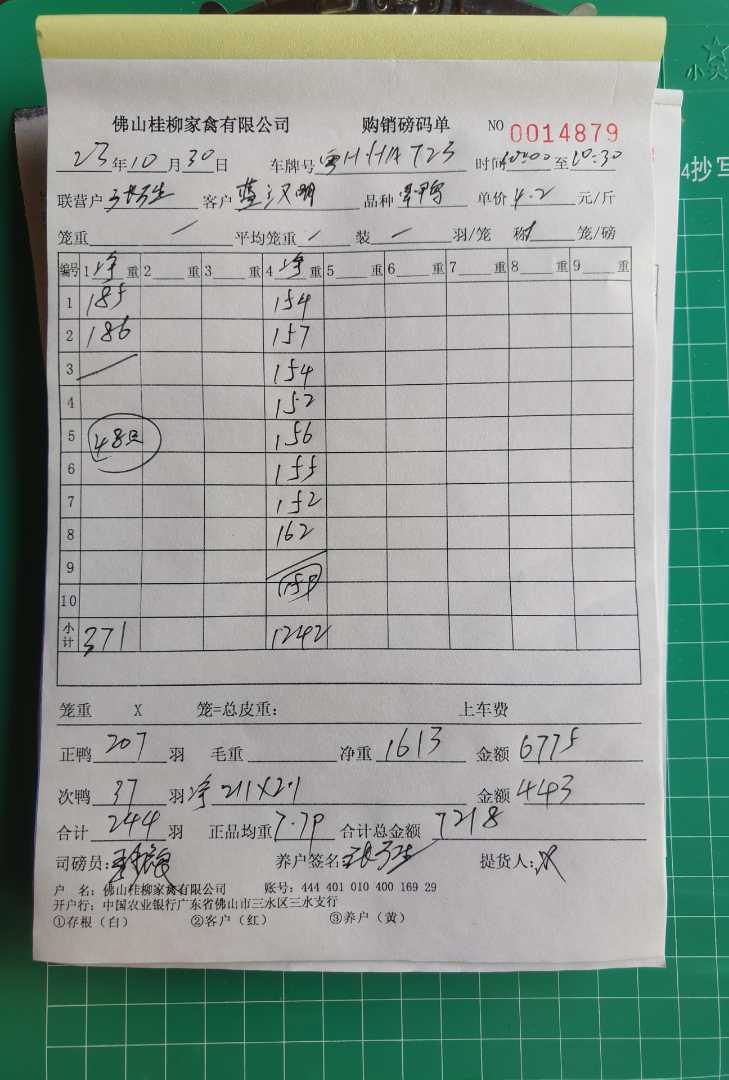 佛山桂柳家禽有限公司 购销磅码单 NO 0014879
23年10月30日 车牌号 粤HHA723 时间10:00至10:30
联营户 客户 蓝汉明 品种 单价4.2元/斤
笼重 / 平均笼重 / 装 一 羽/笼 称 / 笼/磅
编号 1净重 2 重 3 重 4净重 5 重 6 重 7 重 8 重 9 重
1 185 154
2 186 157
3 154
4 152
5 48只 156
6 155
7 152
8 162
9
10
小计 371 1242
笼重 X 笼=总皮重: 上车费
正鸭207羽 毛重 净重1613 金额6775
次鸭37羽 净211X2.1 金额443
合计244羽 正品均重7.79 合计总金额7218
司磅员: 养户签名: 提货人:
户 名: 佛山桂柳家禽有限公司 账号: 444 401 010 400 169 29
开户行: 中国农业银行广东省佛山市三水区三水支行
①存根(白) ②客户(红) ③养户(黄)
小天
4抄写